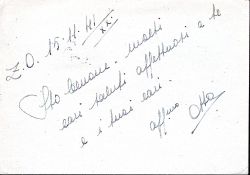 Z.O. 15.11.41
XX.
Sto benone. molti
cari saluti affettuosi a te
e i tuoi cari.
affmo